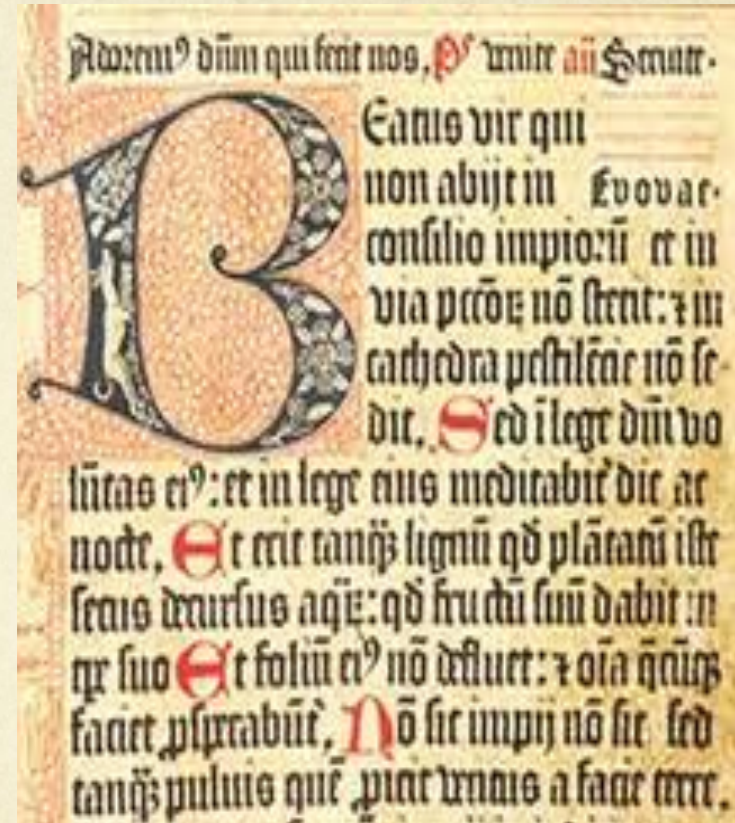 Adorem⁹ dn̄m qui fecit nos, pˢ venite an̄ Servite.
Beatus vir qui
non abijt in Evovae.
consilio impioꝝū et in
via pccōꝝ nō stetit: ⁊ in
cathedra pestilēcie nō se
dit, Sed ī lege dn̄i vo
lūtas ei⁹: et in lege eius meditabit᷑ die ac
nocte, Et erit tanq̄ꝫ lignū qd̓ plātatū iste
secus decursus aqꝝ: qd̓ fructū suū dabit in
tꝑe suo Et foliū ei⁹ nō defluet: ⁊ oīa q̄cūqꝫ
faciet ꝓsꝑabūt᷑, Nō sic impij nō sic sed
tanq̄ꝫ pulvis quē ꝓicit ventus a facie terre,